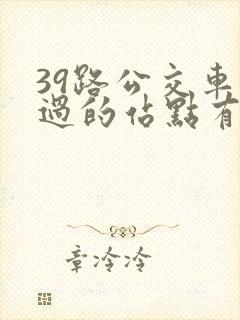 39路公交車
過的佔點有
章冷冷